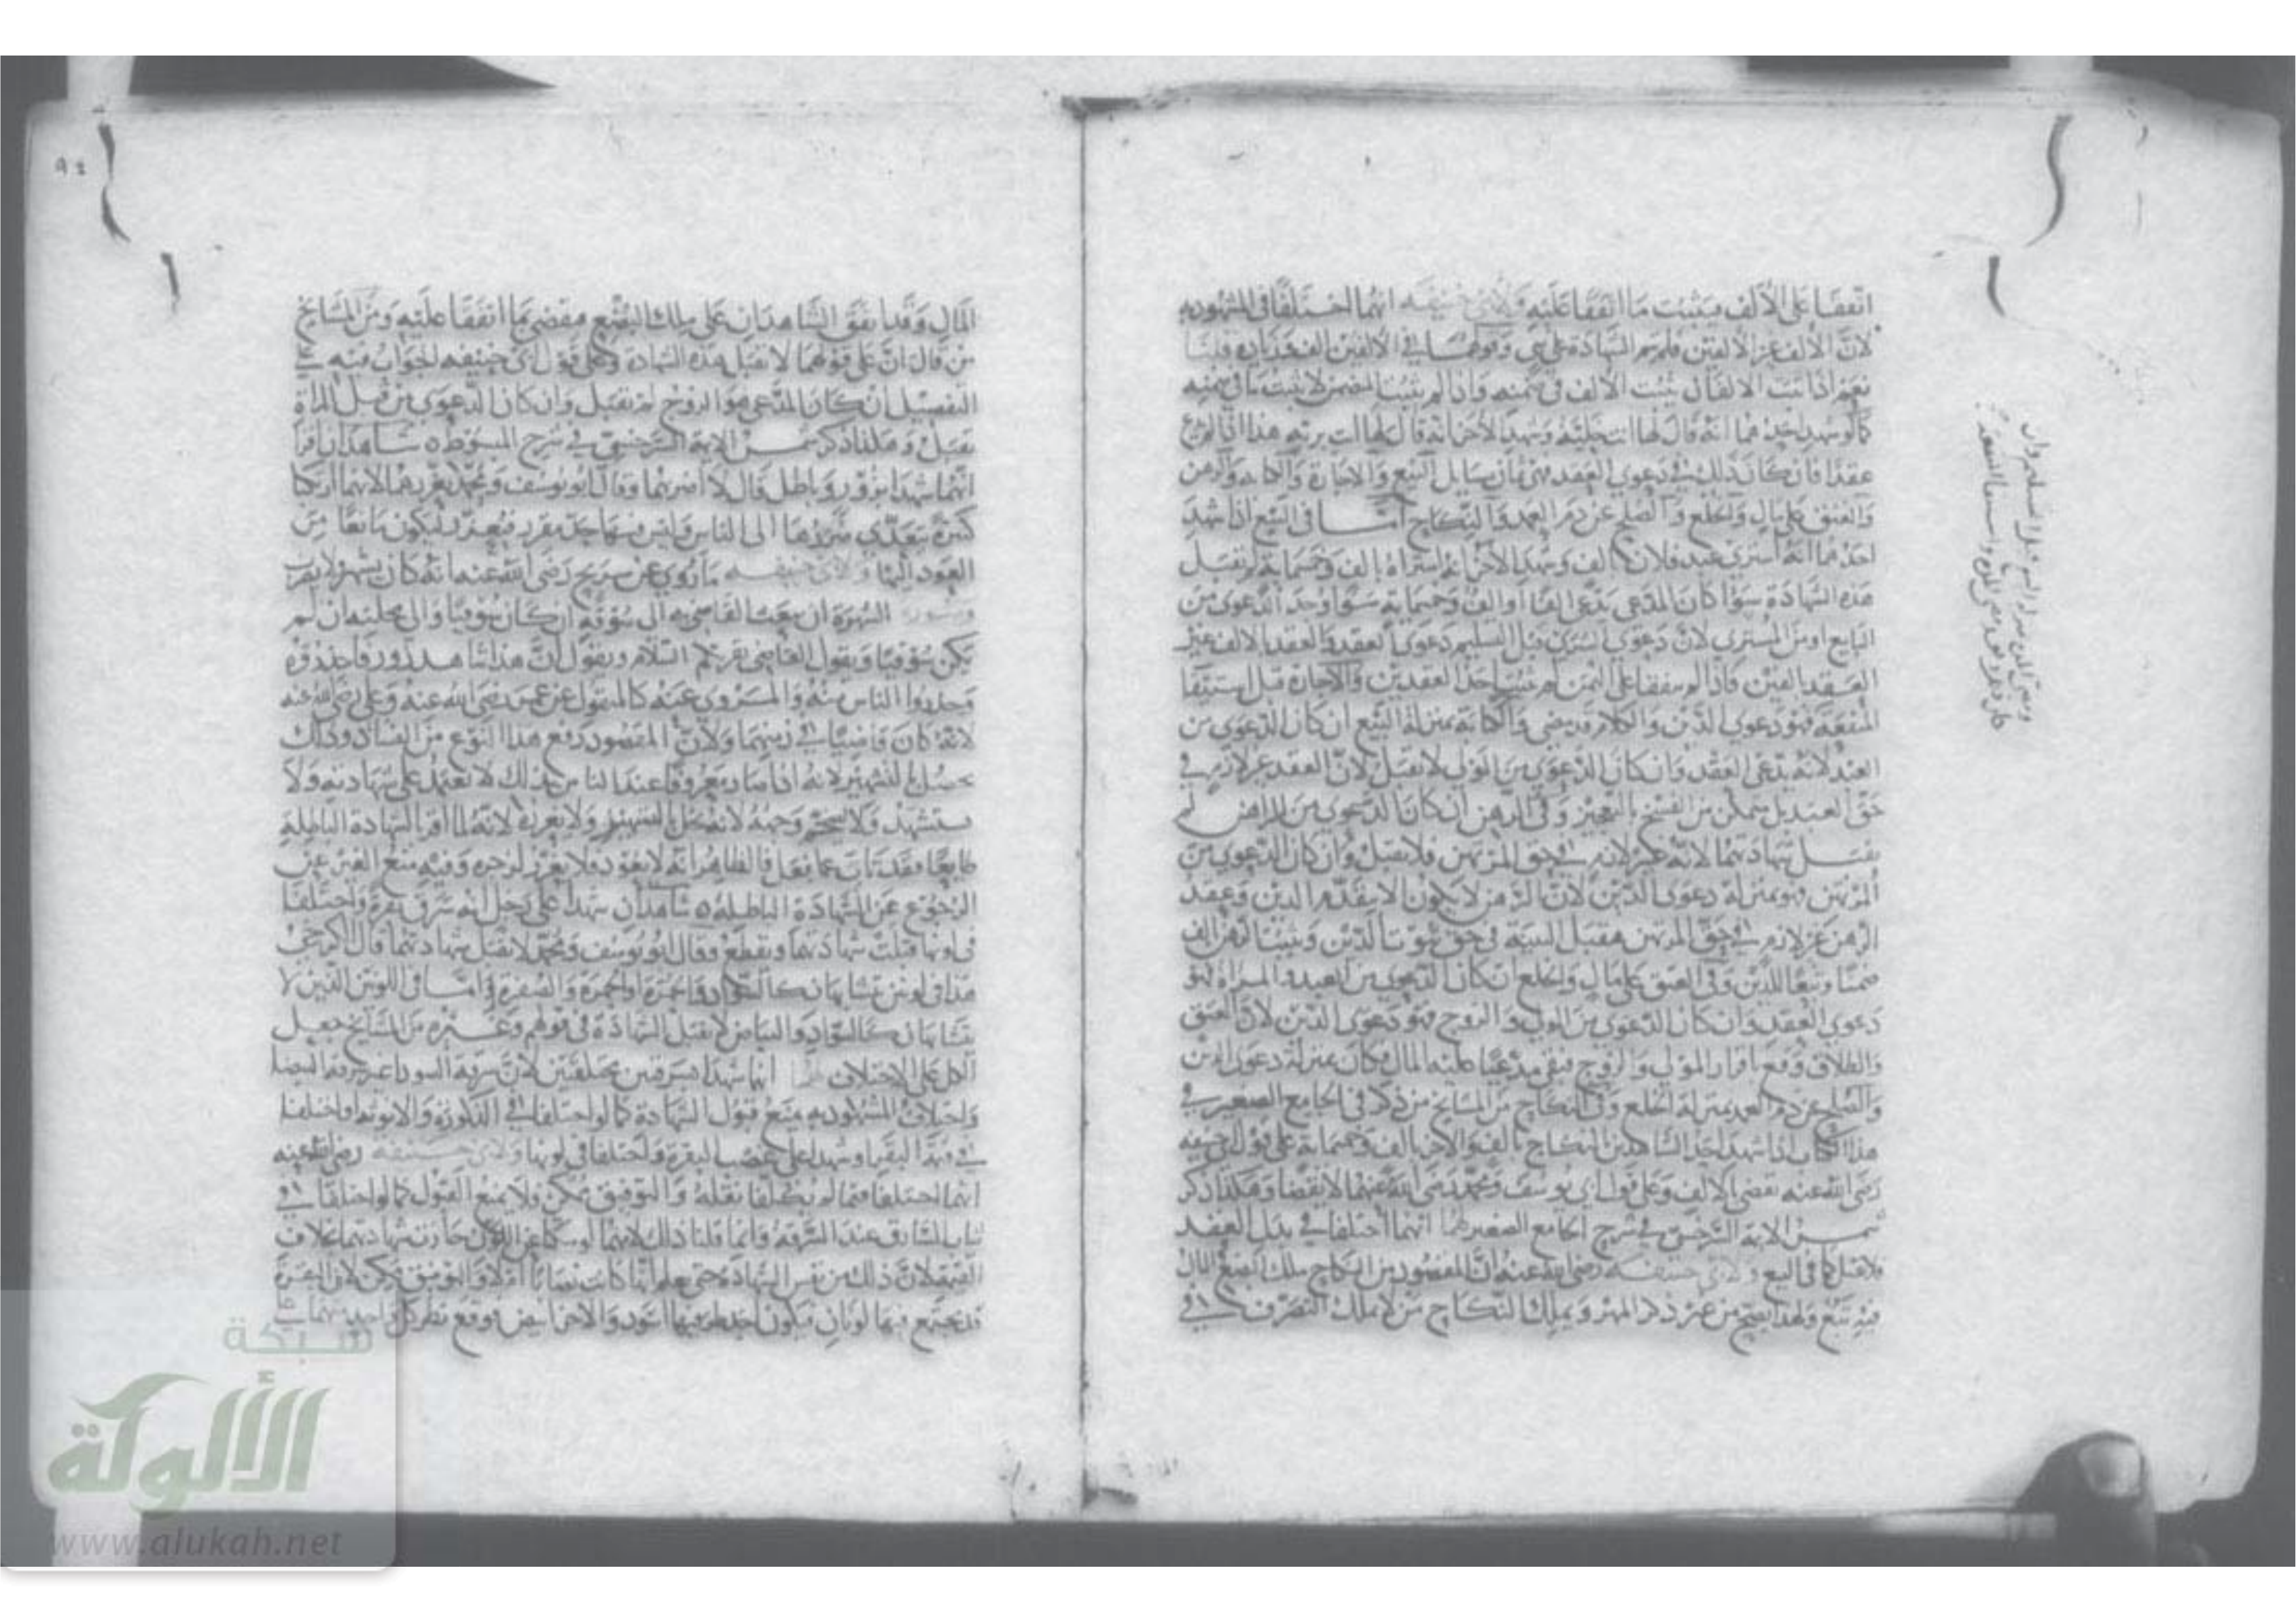 اتفقا على الألف فيثبت ما اتفقا عليه ولأبي حنيفه انهما اختلفا في المشهود به
لان الألف غير الالفين فلم تتم الشهادة على شي وقولهما في الالفين الف
نعم اذا ثبت الالفان يثبت الألف في ضمنه واذا لم يثبت المتضمن لا يثبت ما في ضمنه
كما لو شهد احدهما انه قال لها انت خلية وشهد الآخر انه قال لها انت برية هذا اذا لم يدع
عقدا فان كان ذلك في دعوى العقد فهي ثمان مسايل البيع والاجارة والكتابة والرهن
والعتق على مال والخلع والصلح عن دم العمد والنكاح أما في البيع اذا شهد
احدهما انه اشترى عبد فلان بالف وشهد الآخر انه اشتراه بالف وخمسماية لم تقبل
هذه الشهادة سوا كان المدعي يدعي الفا او الف وخمسماية سوا وجد الدعوى من
البايع او من المشتري لان دعوى المشتري قبل التسليم دعوى العقد والعقد بالالف غير
العقد بالفين فاذا لم يتفقا على الثمن لم يثبت احد العقدين والاجارة قبل استيفا
المنفعة فهو دعوى الدين والكلام فيه مضى والكتابة بمنزلة البيع ان كان الدعوى من
العبد لانه يدعي العقد وان كان الدعوى من المولى لا تقبل لان العقد غير لازم في
حق العبد بل يتمكن من الفسخ بالتعجيز وفي الرهن ان كان الدعوى من الراهن لم
تقبل شهادتهما لانه غير لازم في حق المرتهن فلا تقبل وان كان الدعوى من
المرتهن فهو بمنزلة دعوى الدين لان الرهن لا يكون الا بتقدم الدين وعقد
الرهن غير لازم في حق المرتهن فتقبل البينة في حق ثبوت الدين ويثبت الرهن بالف
ضمنا وتبعا للدين وفي العتق على مال والخلع ان كان الدعوى من العبد والمراة فهو
دعوى العقد وان كان الدعوى من المولى والزوج فهو دعوى الدين لان العتق
والطلاق وقع باقرار المولى والزوج فبقي مدعيا عليه المال فكان بمنزلة دعوى الدين
والصلح عن دم العمد بمنزلة الخلع وفي النكاح من المشايخ من ذكر في الجامع الصغير في
هذا الكتاب اذا شهد احد الشاهدين بالنكاح بالف والاخر بالف وخمسماية على قول ابي حنيفه
رضى الله عنه تقضى بالالف وعلى قول ابي يوسف ومحمد رضى الله عنهما لا يقضا وهكذا ذكر
شمس الايمة السرخسي في شرح الجامع الصغير لهما انهما اختلفا في بدل العقد
فلا تقبل كما في البيع ولابي حنيفه رضى الله عنه ان المقصود من النكاح ملك البضع والمال
فيه تبع ولهذا يصح من غير ذكر المهر ويملك النكاح من لا يملك التصرف في
المال وقد اتفق الشاهدان على ملك البضع فيقضى بما اتفقا عليه ومن المشايخ
من قال ان على قولهما لا تقبل هذه الشهادة وعلى قول ابي حنيفه الجواب فيه على
التفصيل ان كان المدعي هو الزوج لم تقبل وان كان الدعوى من قبل المراة
تقبل وهكذا ذكر شمس الايمة السرخسي في شرح المبسوط ه شاهدان اقرا
انهما شهدا بزور وباطل قال لا اضربهما وقال ابو يوسف ومحمد يعزرهما لانهما ارتكبا
كبيرة يتعدى ضررها الى الناس وليس فيها حد مقرر فيعزر ليكون مانعا من
العود اليها ولابي حنيفه ما روي عن شريح رضى الله عنه انه كان يشهر ولا يضرب
الشهرة ان يبعث القاضي به الى سوقه ان كان سوقيا والى محلته ان لم
يكن سوقيا ويقول القاضي يقريكم السلام ويقول ان هذا شاهد زور فاحذروه
وحذروا الناس منه والمروي عنه كالمنقول عن عمر رضى الله عنه وعلي رضى الله عنه
لانه كان قاضيا في زمنهما ولان المقصود رفع هذا النوع من الفساد وذلك
يحصل بالتشهير لانه اذا صار معروفا عند الناس بذلك لا تعتمد على شهادته ولا
يستشهد ولا يسحم وجهه لانه خل التشهير ولا يعزره لانه لما اقر بالشهادة الباطلة
طايعا فقد تاب عما فعل فالظاهر انه لا يعود فلا يعزر لزجره وفيه منع الغير عن
الرجوع عن الشهادة الباطلة ه شاهدان شهدا على رجل انه سرق بقرة واختلفا
في لونها قبلت شهادتهما ويقطع وقال ابو يوسف ومحمد لا تقبل شهادتهما قال الكرخي
هذا في لونين يتشابهان كالسواد والحمرة او الحمرة والصفرة فاما في اللونين الذين لا
يتشابهان كالسواد والبياض لا تقبل الشهادة في قولهم وغيره من المشايخ جعل
الكل على الاختلاف لهما انهما شهدا بسرقتين مختلفتين لان سرقة السودا غير سرقة البيضا
واختلاف المشهود به يمنع قبول الشهادة كما لو اختلفا في الذكورة والانوثة او اختلفا
في قيمة البقر او شهدا على غصب البقرة واختلفا في لونها ولابي حنيفه رضى الله عنه
انهما اختلفا فيما لم يكلفا نقله والتوفيق ممكن ولا يمنع القبول كما لو اختلفا في
ثياب السارق عند السرقة وانما قلنا ذلك لانهما لو سكتا عن اللون جازت شهادتهما بخلاف
القيمة لان ذلك من نفس الشهادة حتى يعلم انها كانت نصابا ام لا والتوفيق ممكن لان البقرة
قد يجتمع فيها لونان فيكون احد طرفيها اسود والاخر ابيض فوقع نظر كل واحد منهما في
شبكة
الألوكة
www.alukah.net